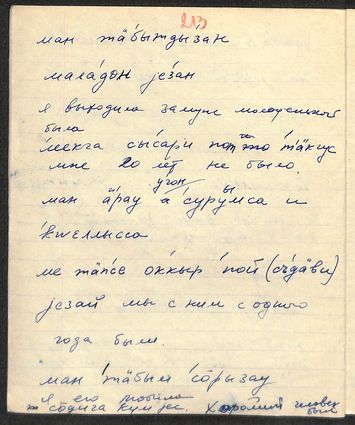 213
ман тӓбыӷдызан
маладо̄н jе́зан
я выходила замуж молоденькой
была
ме́кга сы́сари поттто тӓ́кгус
мне 20 лет не было.
угон
ман ӓ́рау а́ суру́мса и
ы
кwеллысса
ме тӓпсе о́ккыр по́й (сы́дӓви)
jезай мы с ним с одного
года были.
ман тӓбым со̄рызау
я его любила
т со́дига кум jес. Хороший человек
был